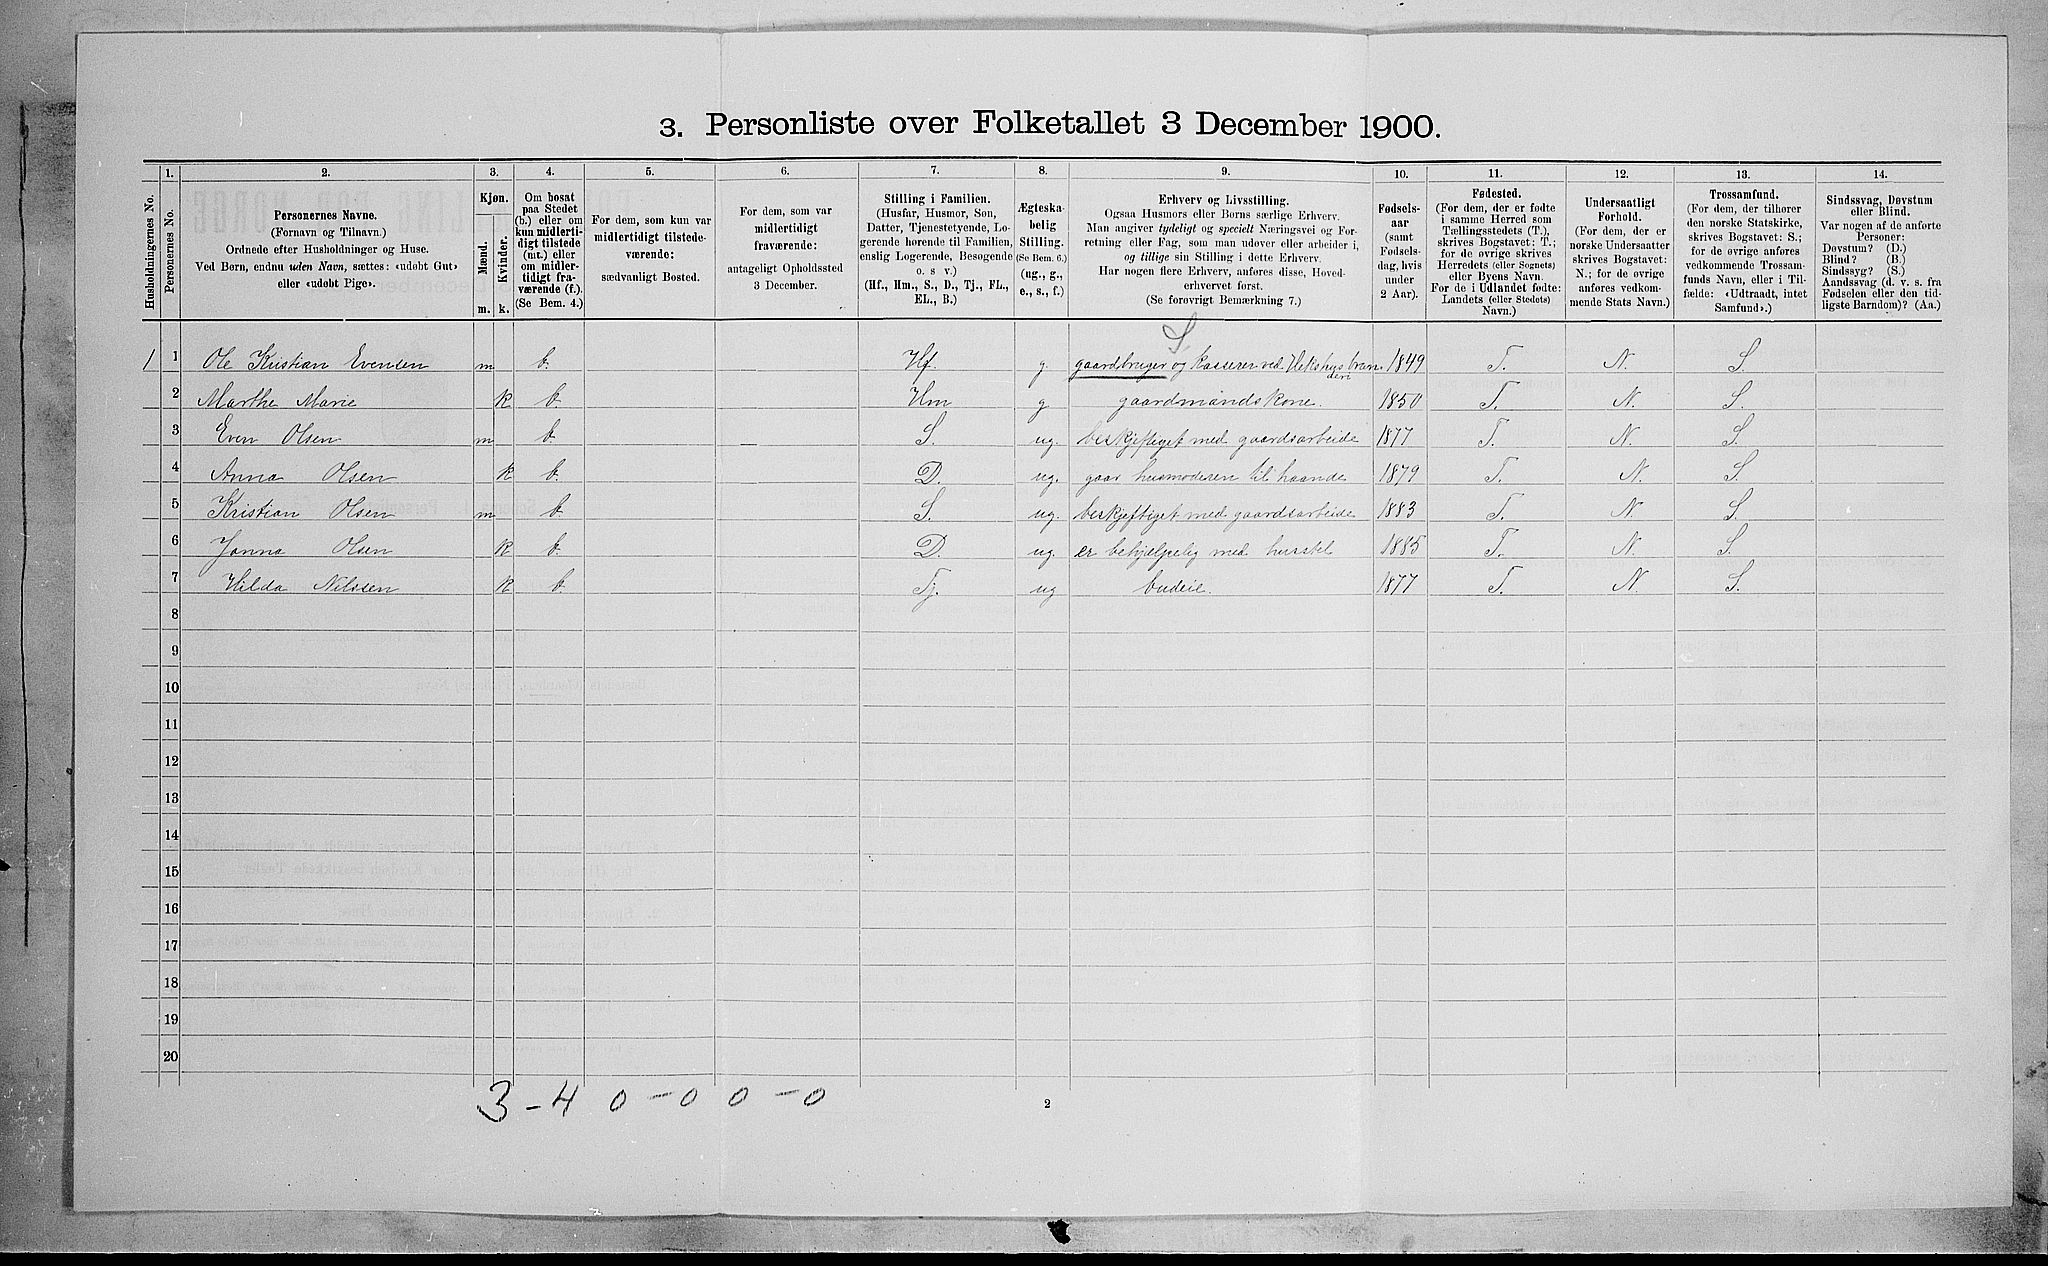 3. Personliste over Folketallet 3 December 1900.
Husholdningernes No.
1.
Personernes No.
2.
Personernes Navne.
(Fornavn og Tilnavn.)
Ordnede efter Husholdninger og Huse.
Ved Børn, endnu uden Navn, sættes: «udøbt Gut»
eller «udøbt Pige».
3.
Kjøn.
Mænd.
Kvinder.
m. k.
4.
Om bosat
paa Stedet
(b.) eller om
kun midlerti-
digt tilstede
(mt.) eller
om midler-
tidigt fra-
værende (f.).
(Se Bem. 4.)
5.
For dem, som kun var
midlertidigt tilstede-
værende:
sædvanligt Bosted.
6.
For dem, som var
midlertidigt
fraværende:
antageligt Opholdssted
3 December.
7.
Stilling i Familien.
(Husfar, Husmor, Søn,
Datter, Tjenestetyende, Lo-
gerende hørende til Familien,
enslig Logerende, Besøgende
o. s v.)
(Hf., Hm., S., D., Tj., FL.,
EL., B.)
8.
Ægteska-
belig
Stilling.
(Se Bem. 6.)
(ug., g.,
e., s., f.)
9.
Erhverv og Livsstilling.
Ogsaa Husmors eller Børns særlige Erhverv.
Man angiver tydeligt og specielt Næringsvei og For-
retning eller Fag, som man udøver eller arbeider i,
og tillige sin Stilling i dette Erhverv.
Har nogen flere Erhverv, anføres disse, Hoved-
erhvervet først.
(Se forøvrigt Bemærkning 7.)
10.
Fødsels-
aar
(samt
Fødsels-
dag, hvis
under
2 Aar).
11.
Fødested.
(For dem, der er fødte
i samme Herred som
Tællingsstedets (T.),
skrives Bogstavet: T.;
for de øvrige skrives
Herredets (eller Sognets)
eller Byens Navn.
For de i Udlandet fødte:
Landets (eller Stedets)
Navn.)
12.
Undersaatligt
Forhold.
(For dem, der er
norske Undersaatter
skrives Bogstavet:
N.; for de øvrige
anføres vedkom-
mende Stats Navn.)
13.
Trossamfund.
(For dem, der tilhører
den norske Statskirke,
skrives Bogstavet: S.;
for de øvrige anføres
vedkommende Trossam-
funds Navn, eller i Til-
fælde: «Udtraadt, intet
Samfund».)
14.
Sindssvag, Døvstum
eller Blind.
Var nogen af de anførte
Personer:
Døvstum? (D.)
Blind? (B.)
Sindssyg? (S.)
Aandssvag (d. v. s. fra
Fødselen eller den tid-
ligste Barndom)? (Aa.)
S.
1 1 Ole Kristian Evensen m b. Hf. g. gaardbruger og kasserer ved 1849 T. N. S.
2 Marthe Marie k b. Hm g gaardmandskone. 1850 T. N. S.
3 Even Olsen m b. S. ug. beskjeftiget med gaardsarbeide 1877 T. N. S.
4 Anna Olsen k b. D. ug. gaar husmoderen til haande 1879 T. N. S.
5 Kristian Olsen m b. S. ug. beskjeftiget med gaardsarbeide 1883 T. N. S.
6 Janna Olsen k b. D. ug er behjelpelig med husstel 1885 T. N. S.
7 Hilda Nilssen k b. Tj. ug budeie. 1877 T. N. S.
8
9
10
11
12
13
14
15
16
17
18
19
20
3 - 4 0 - 0 0 - 0
2